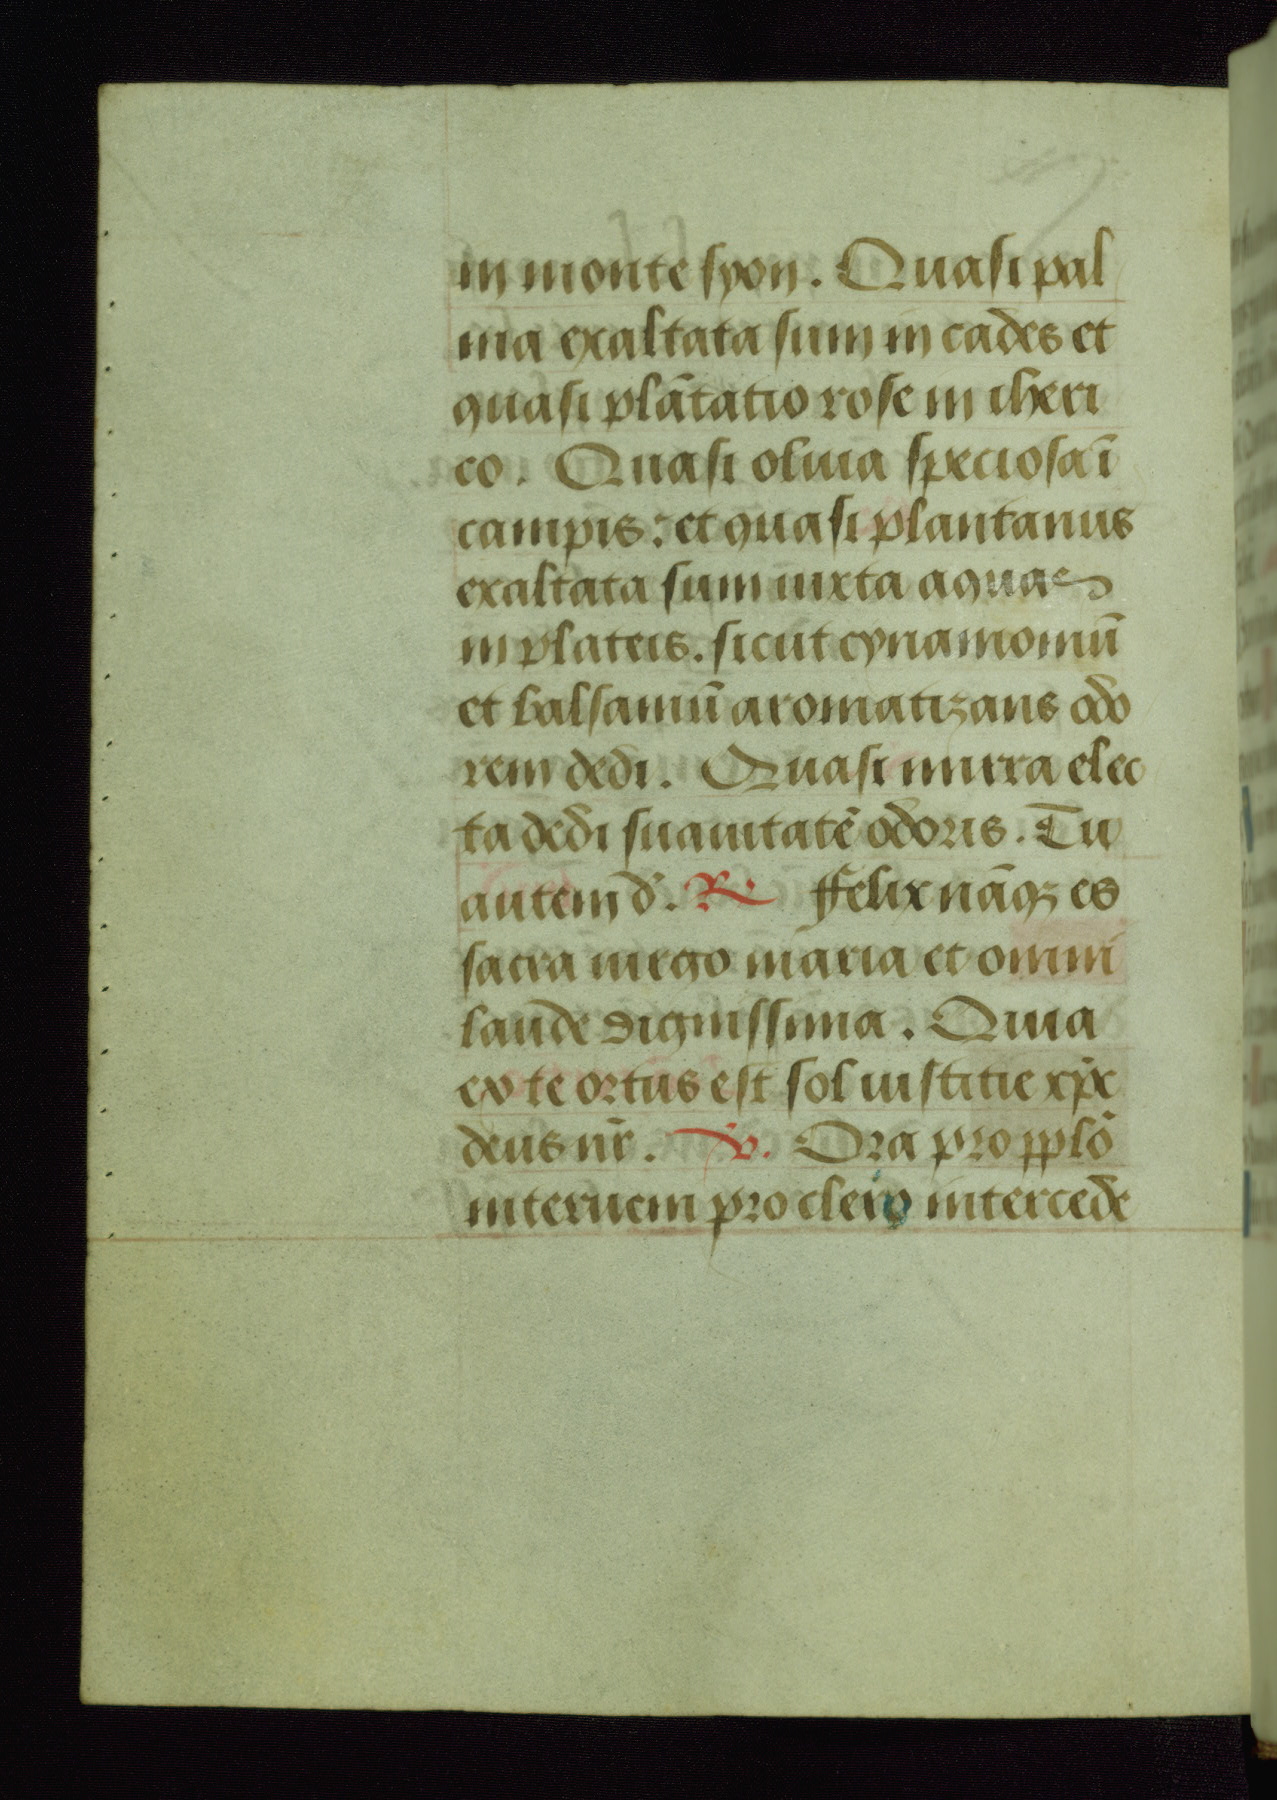 in monte syon. Quasi pal
ma exaltata sum in cades et
quasi plātatio rose in iheri
co. Quasi oliua speciosa ī
campis: et quasi plantanus
exaltata sum iuxta aquas
in plateis. sicut cynamomū
et balsamū aromatizans odo
rem dedi. Quasi mirra elec
ta dedi suauitatē odoris. Tu
autem d. R. ffelix nāqꝫ es
sacra uirgo maria et omni
laude dignissima. Quia
ex te ortus est sol iustitie xp̄c
deus nr̄. v. Ora pro pplō
interueni pro clero intercede